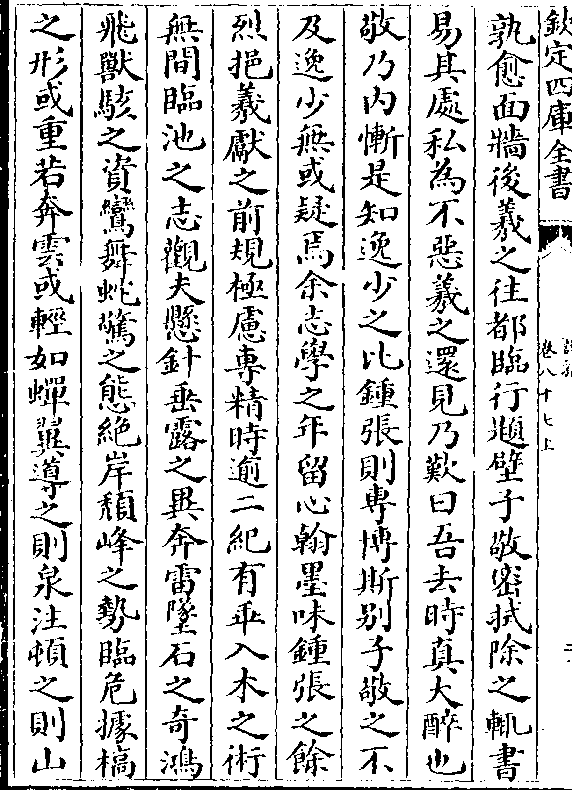 欽定四庫全書
卷八十七上
孰愈面牆後羲之往都臨行題壁子敬密拭除之輒書
易其處私為不惡羲之還見乃歎曰吾去時真大醉也
敬乃内慚是知逸少之比鍾張則專博斯别子敬之不
及逸少無或疑焉余志學之年留心翰墨味鍾張之餘
烈挹羲獻之前規極慮專精時逾二紀有乖入木之術
無間臨池之志觀夫懸針垂露之異奔雷墜石之奇鴻
飛獸駭之資鸞舞蛇驚之態絶岸頽峰之勢臨危據槁
之形或重若奔雲或輕如蟬翼導之則泉注頓之則山